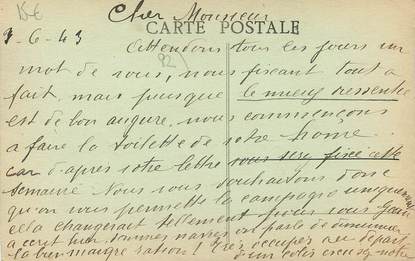 15€
Cher Monsieur
CARTE POSTALE
7-6-43
Attendons tous les jours un
mot de vous, nous fixant tout à
fait, mais puisque le mieux ressentie
est de bon augure, nous commençons
a faire la toilette de votre
car d'après votre lettre vous serez fixé cette
semaine. Nous vous souhaitons donc
qu'on vous permette la campagne uniquement
cela changerait tellement pour vous
on parle de diminuer
la bien maigre ration! Très occupés au départ